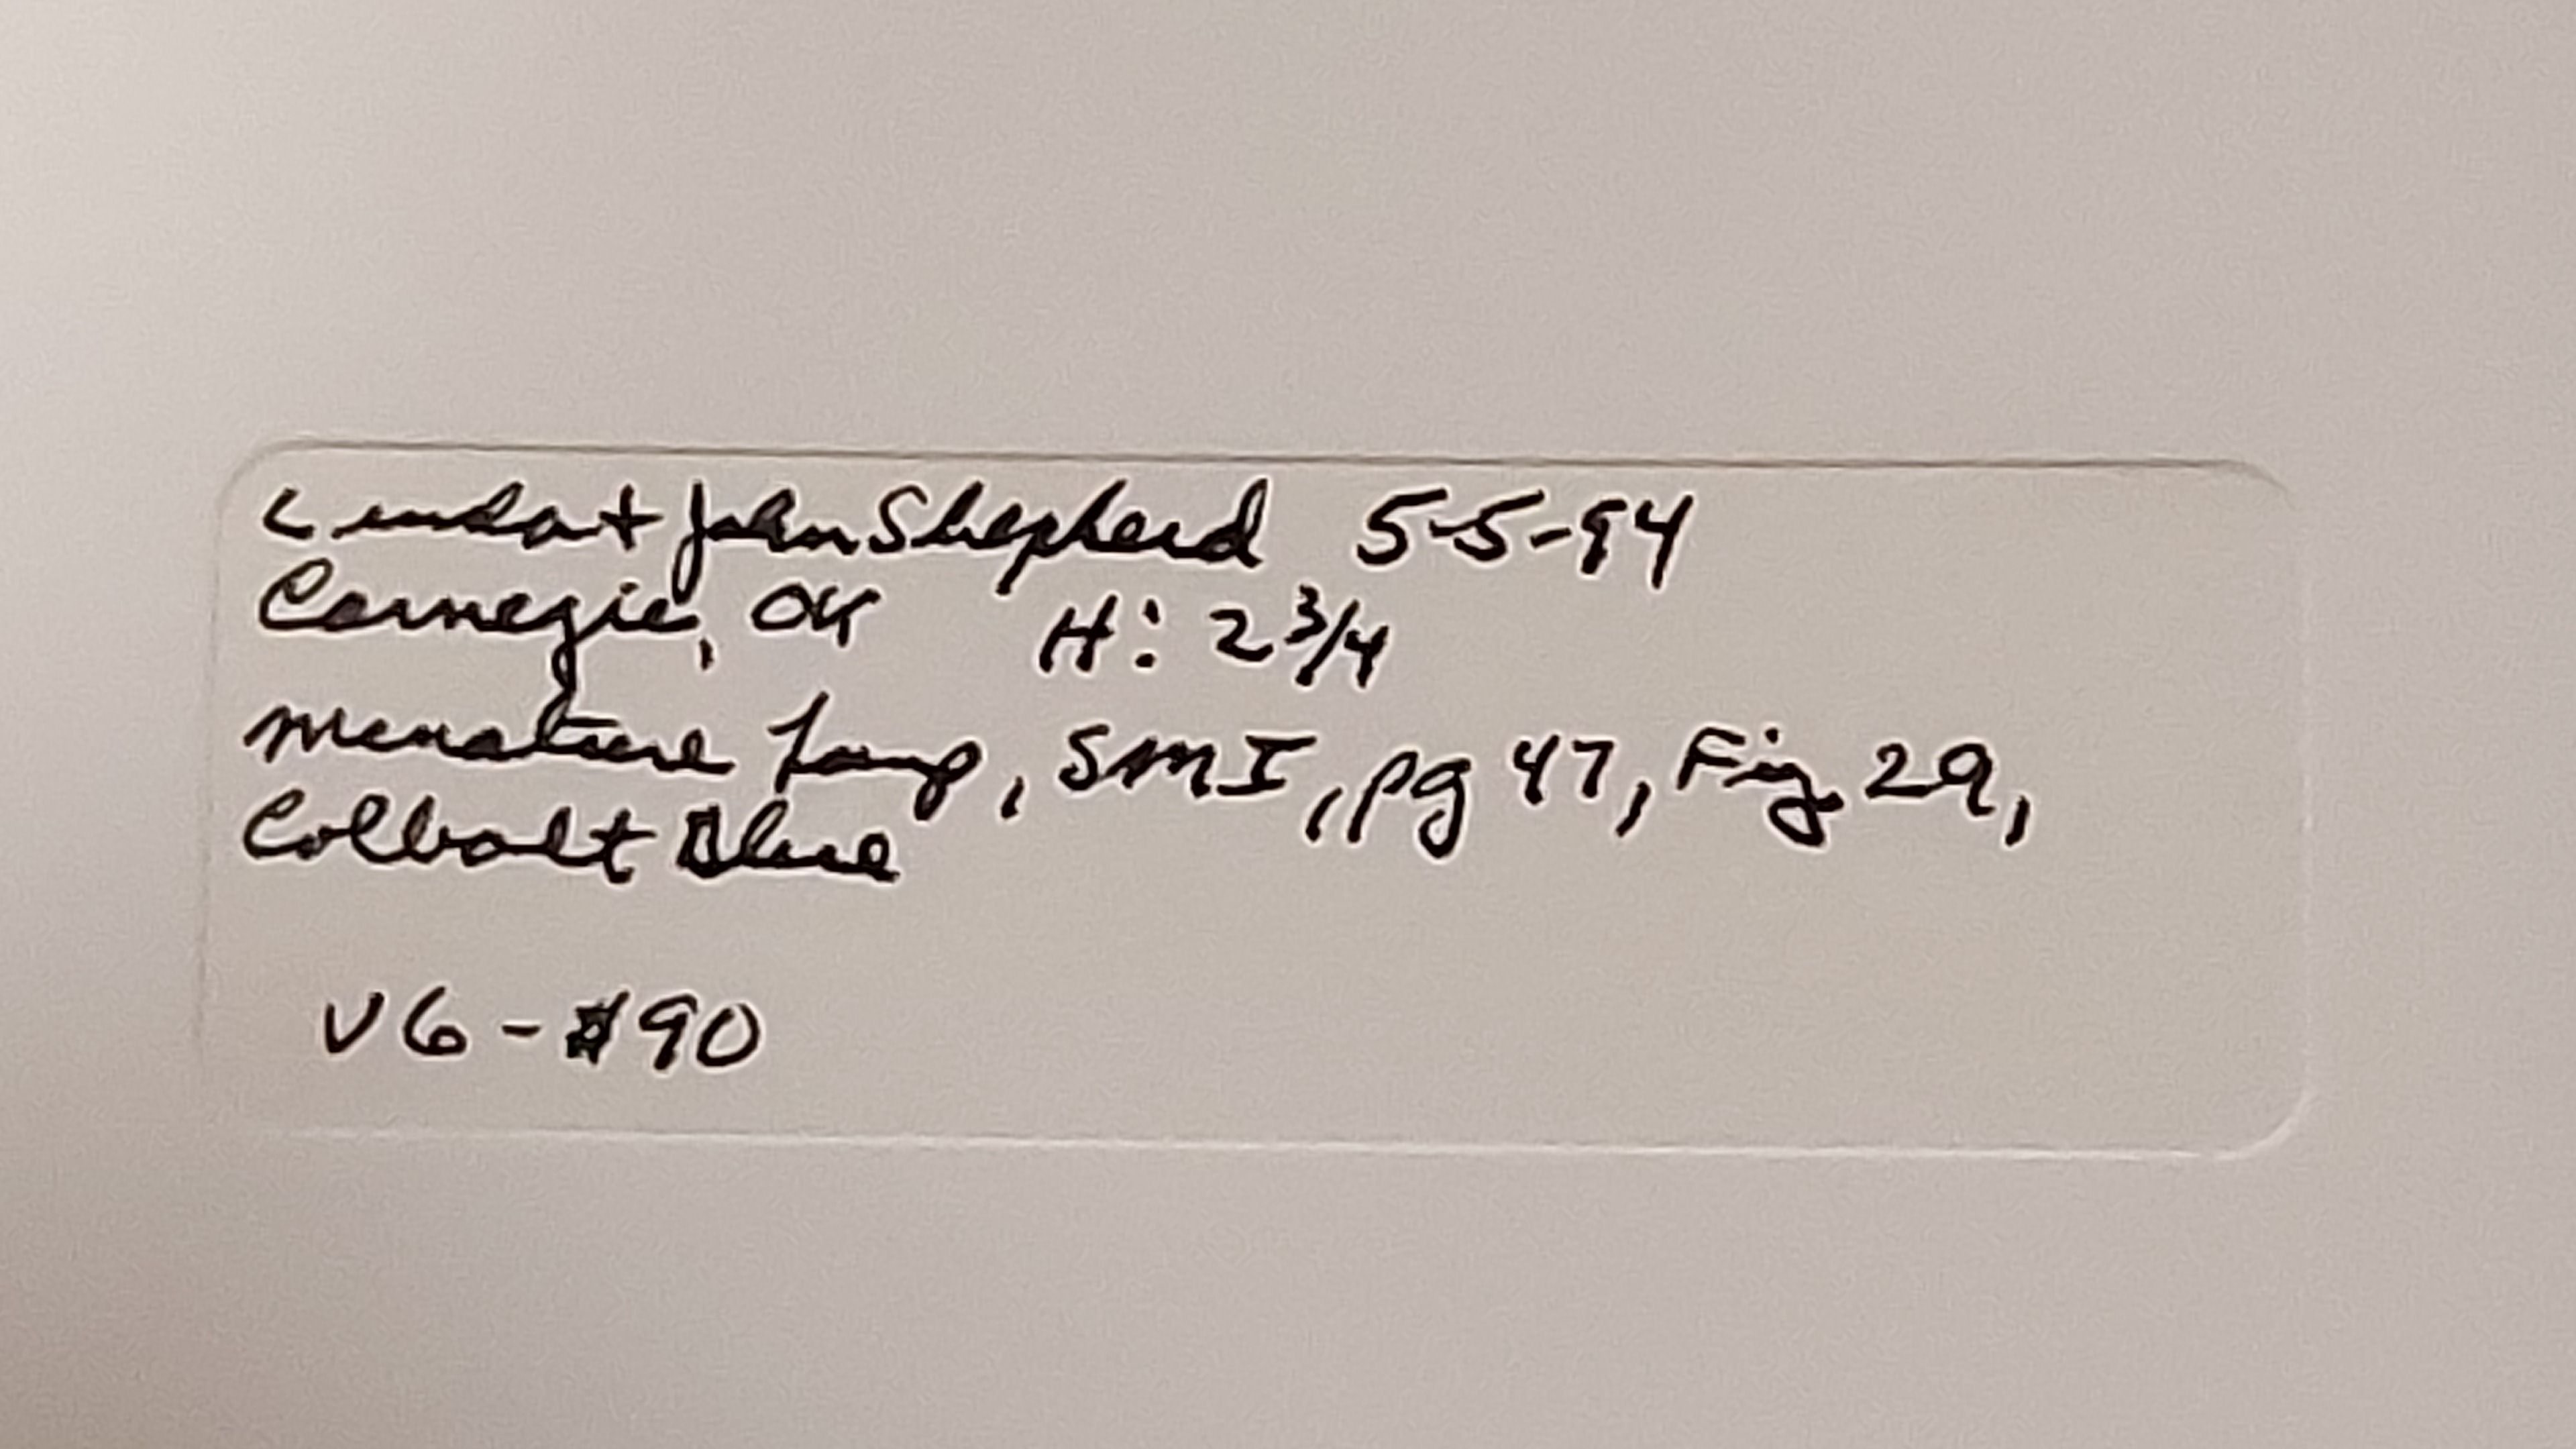 Linda + John Shepherd 5-5-94
Carnegie, OK H: 2 3/4
Minature Lamp, SMI, pg 47, Fig. 29,
Colbalt Blue
V6 - $90